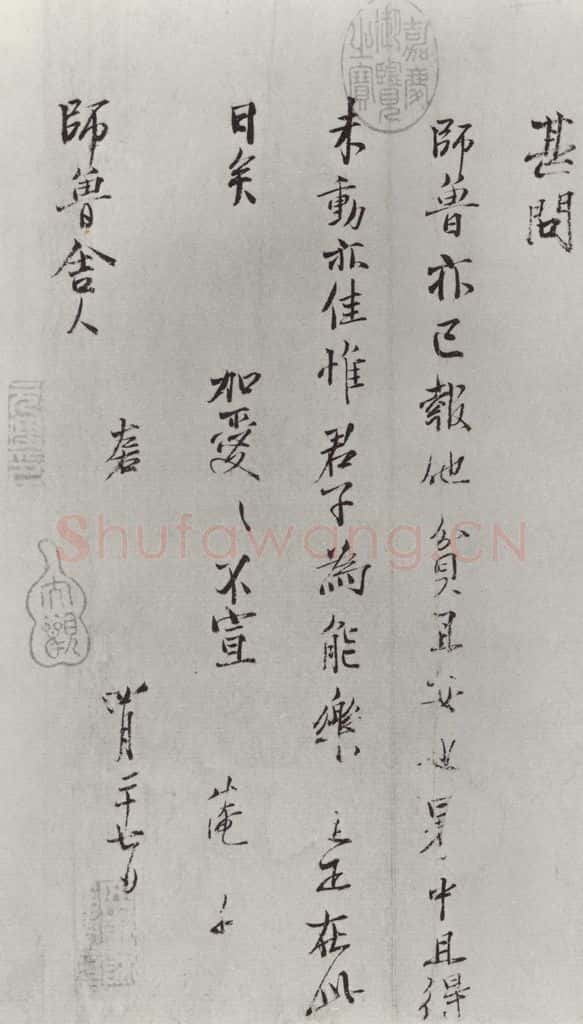 嘉慶御覽之寶
甚問
師魯亦已報他貧且安也暑中且得
未動亦佳惟君子為能樂道正在此
日矣 加愛〻不宣 淹
師魯舍人 四月二十七日
Shufawang.CN